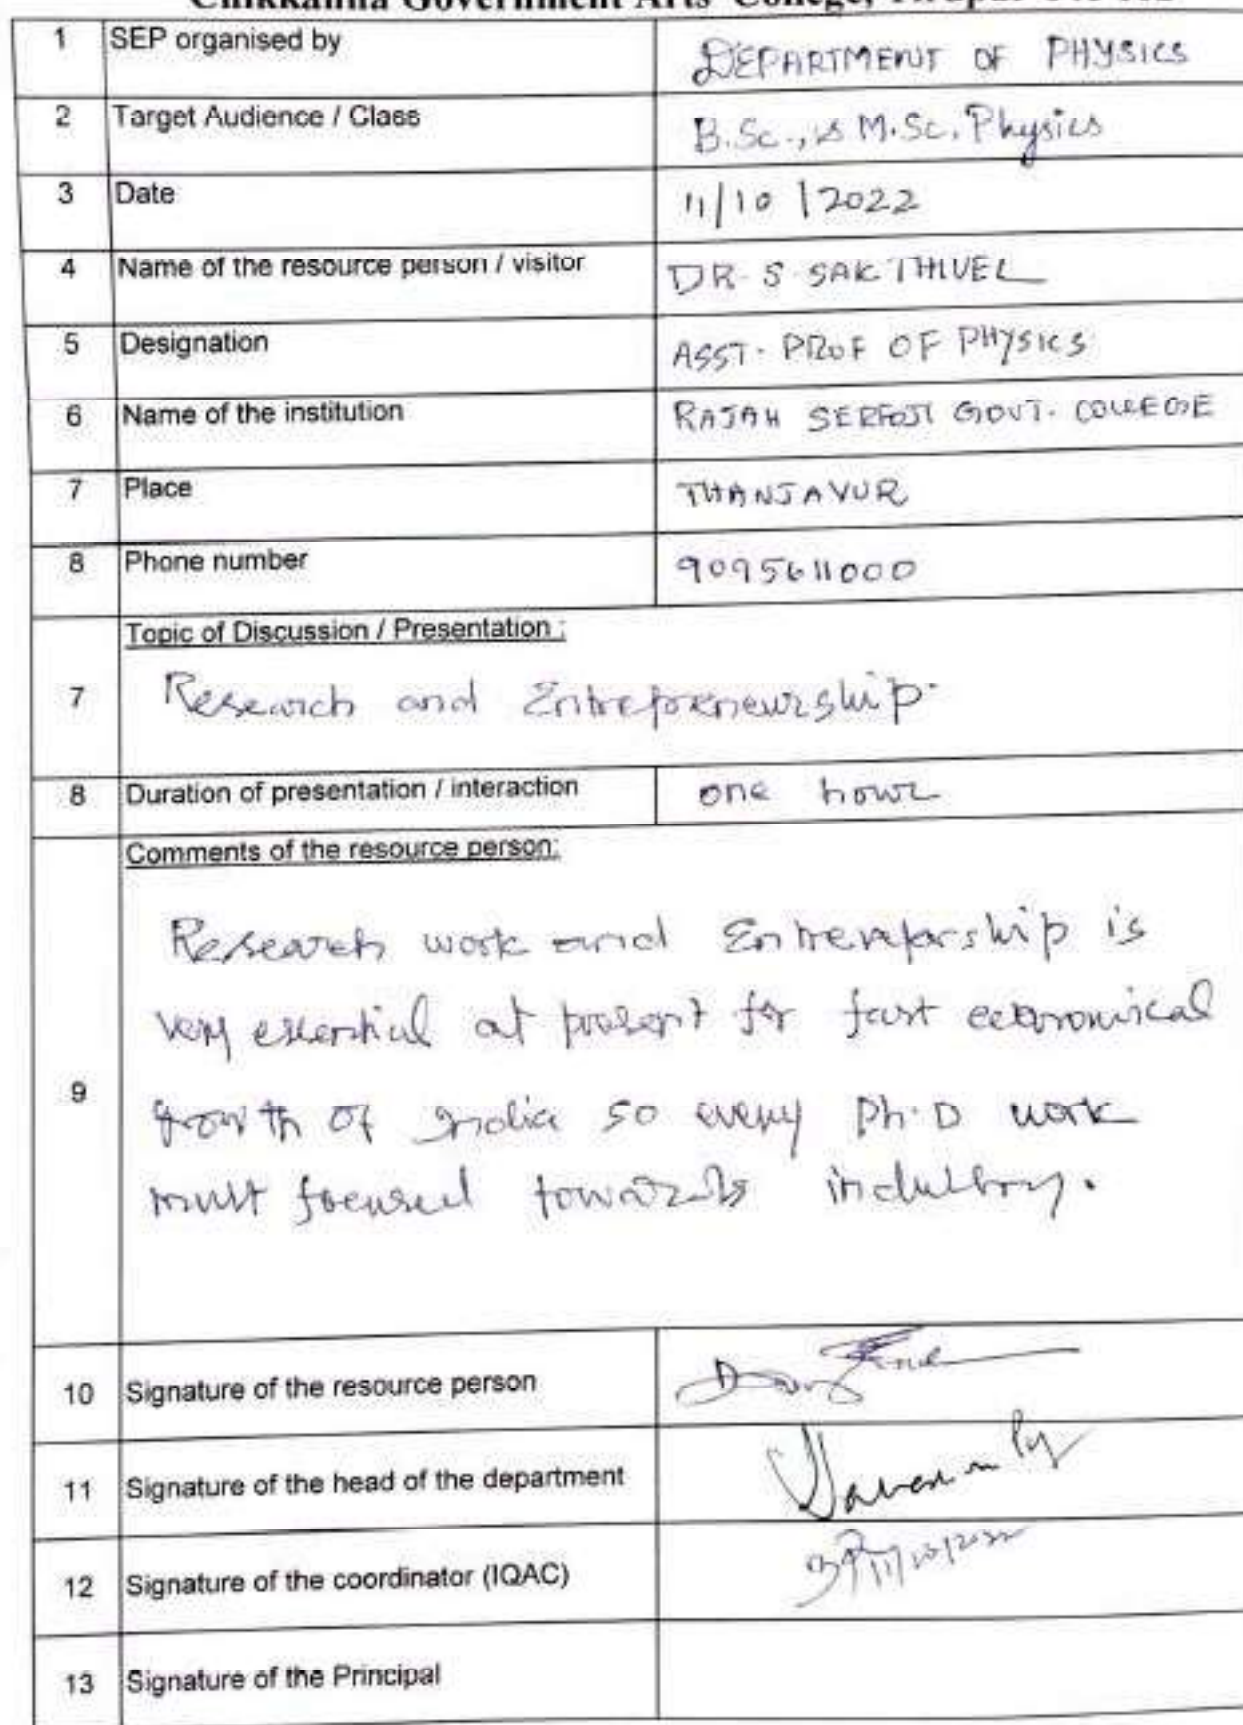 Chikkanna Government Arts College, Tirupur
1 SEP organised by DEPARTMENT OF PHYSICS
2 Target Audience / Class B.Sc., & M.Sc. Physics
3 Date 11/10/2022
4 Name of the resource person / visitor DR. S. SAKTHIVEL
5 Designation ASST. PROF OF PHYSICS
6 Name of the institution RAJAH SERFOJI GOVT. COLLEGE
7 Place THANJAVUR
8 Phone number 9095611000
Topic of Discussion / Presentation :
7 Research and Entrepreneurship.
8 Duration of presentation / interaction one hour
Comments of the resource person:
Research work and is
very essential at present for fast economical
9 growth of India so every Ph.D work
must focused towards industry.
10 Signature of the resource person
11 Signature of the head of the department
12 Signature of the coordinator (IQAC) 11/10/2022
13 Signature of the Principal